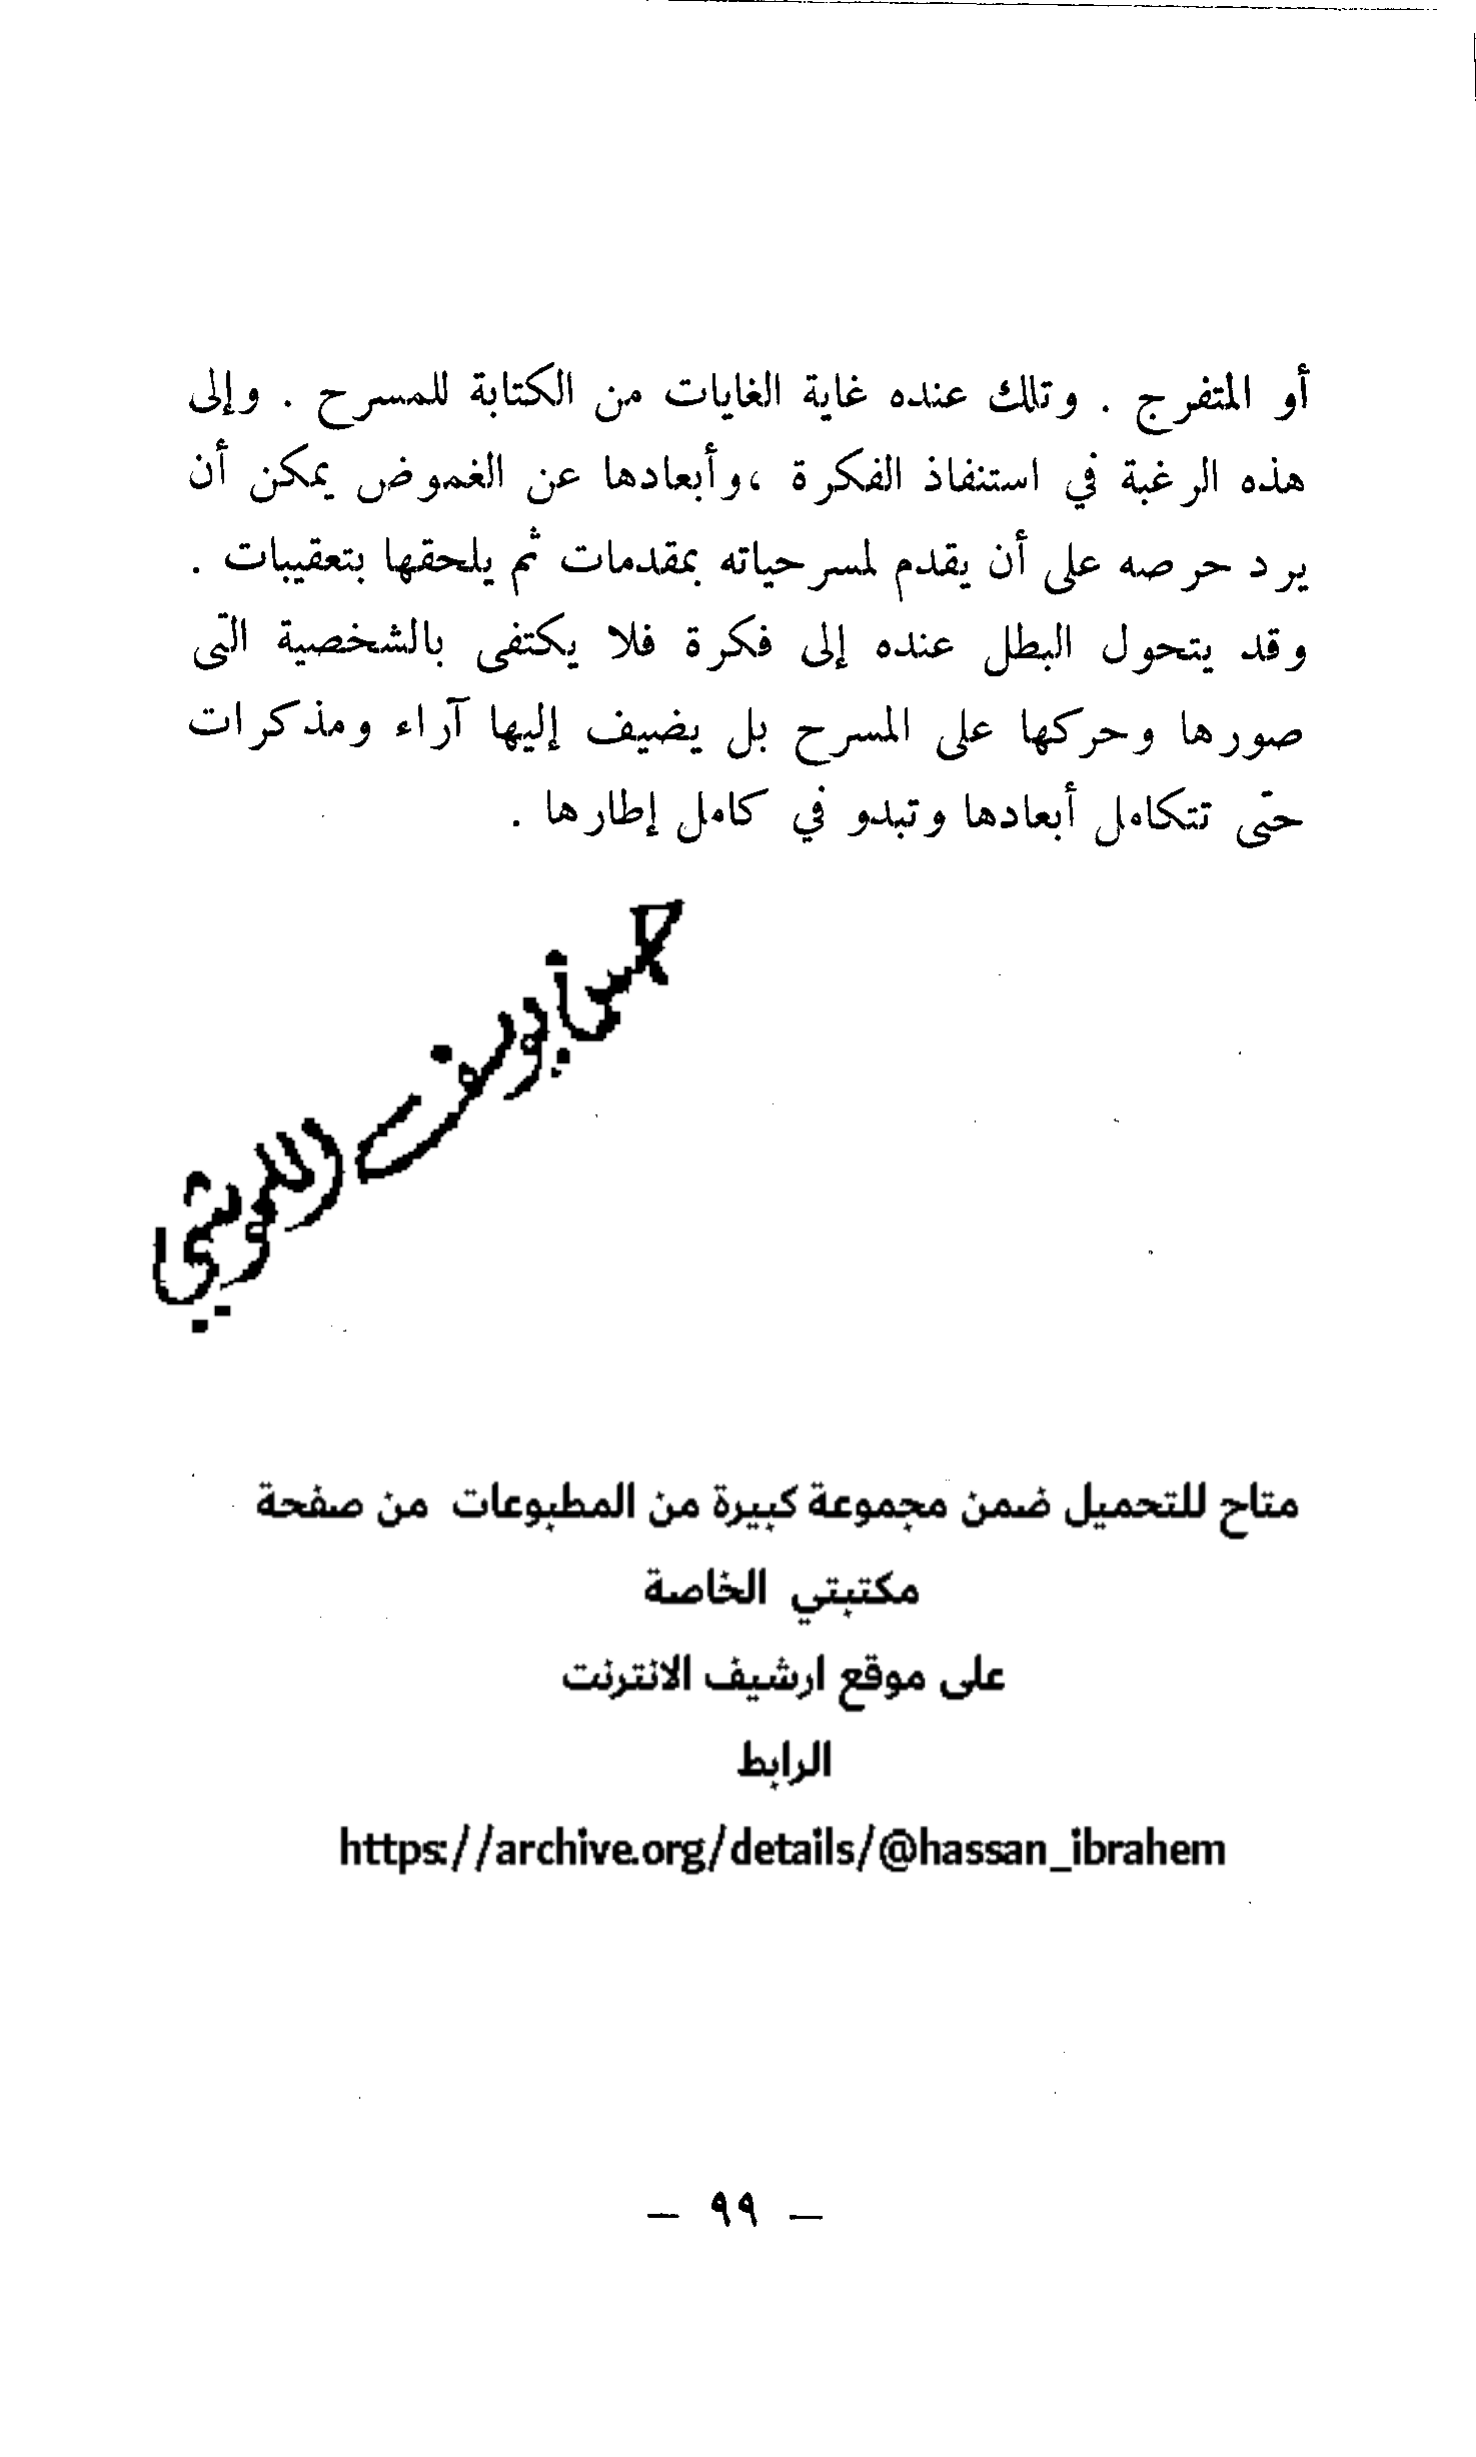 أو المتفرج . وتلك عنده غاية الغايات من الكتابة للمسرح . وإلى
هذه الرغبة في استنفاذ الفكرة ،وأبعادها عن الغموض يمكن أن
يرد حرصه على أن يقدم لمسرحياته بمقدمات ثم يلحقها بتعقيبات .
وقد يتحول البطل عنده إلى فكرة فلا يكتفى بالشخصية التى
صورها وحركها على المسرح بل يضيف إليها آراء ومذكرات
حتى تتكامل أبعادها وتبدو في كامل إطارها .
متاح للتحميل ضمن مجموعة كبيرة من المطبوعات من صفحة
مكتبتي الخاصة
على موقع ارشيف الانترنت
الرابط
https://archive.org/details/@hassan_ibrahem
— ٩٩ —